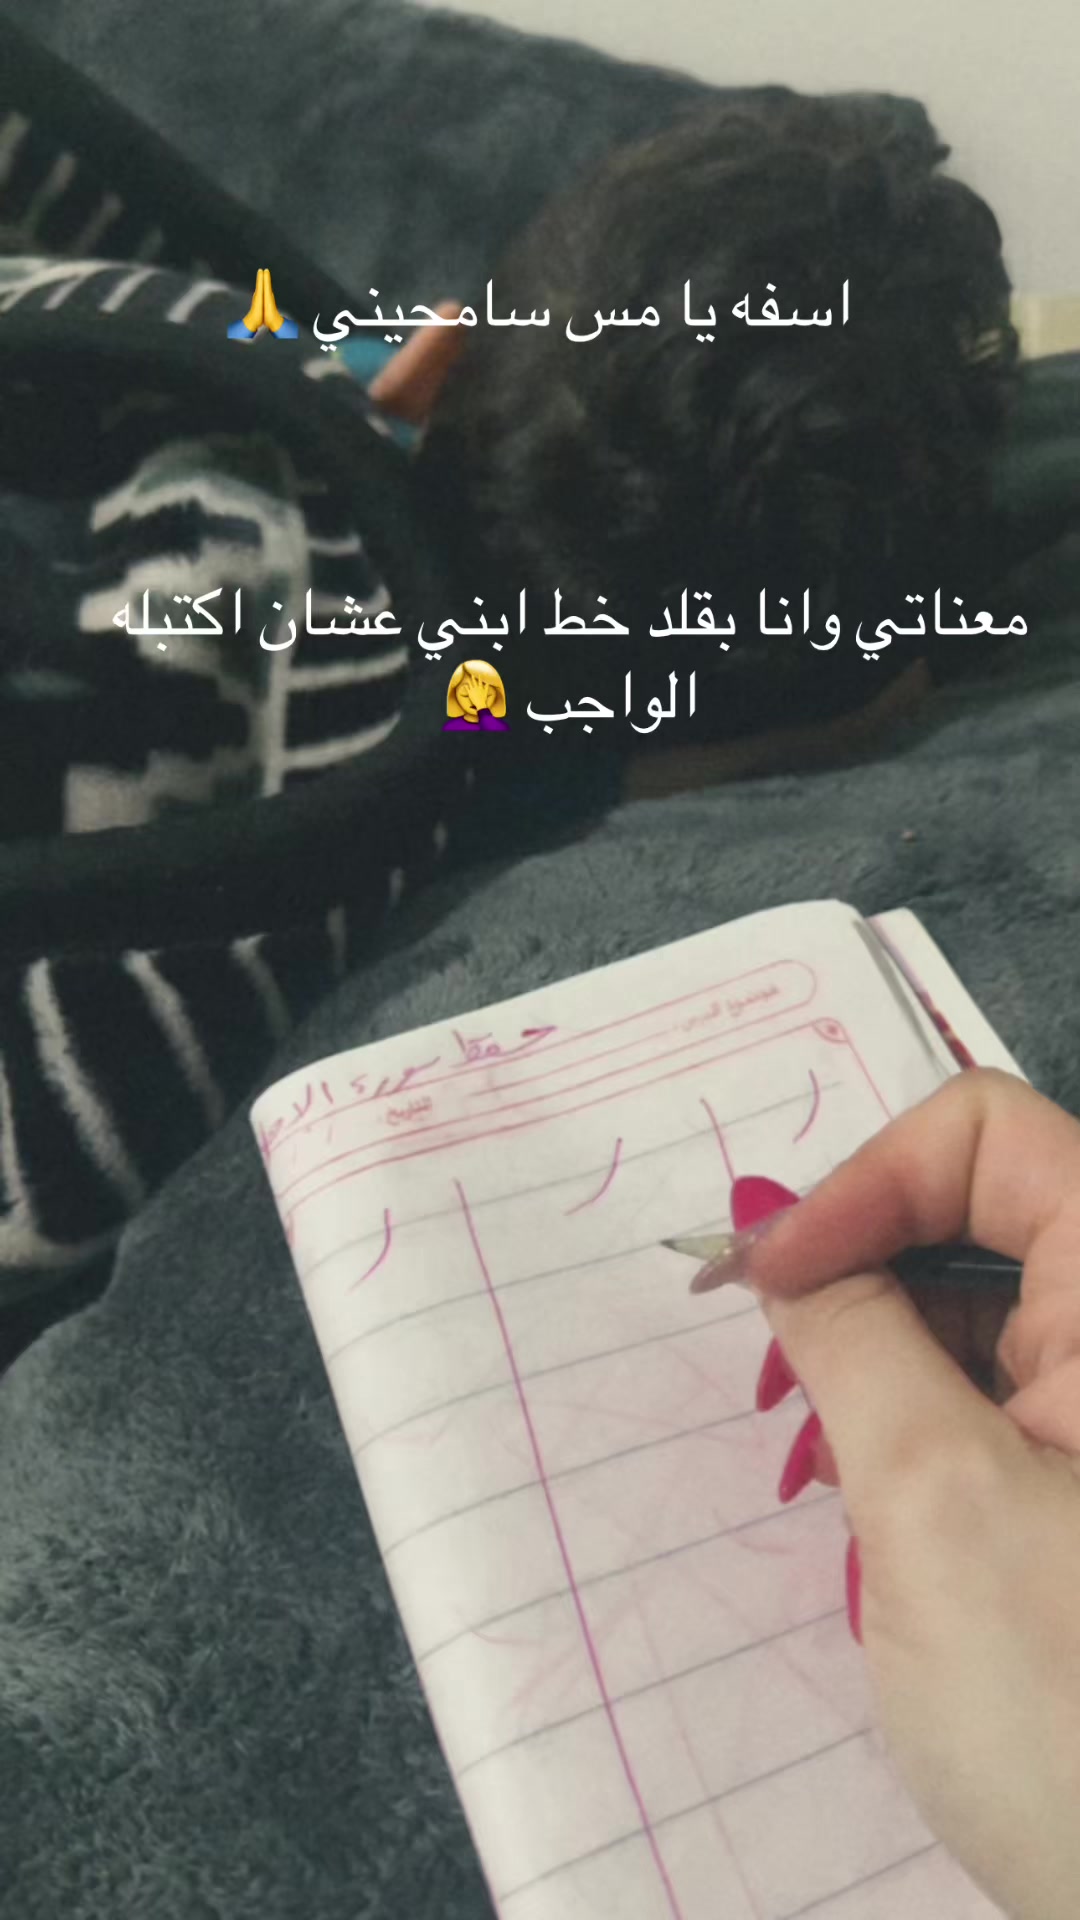 اسفه يا مس سامحيني 🙏
معناتي وانا بقلد خط ابني عشان اكتبله
الواجب 🤦‍♀️
موضوع الدرس
حفظ سورة
التاريخ
ر
ر
ر